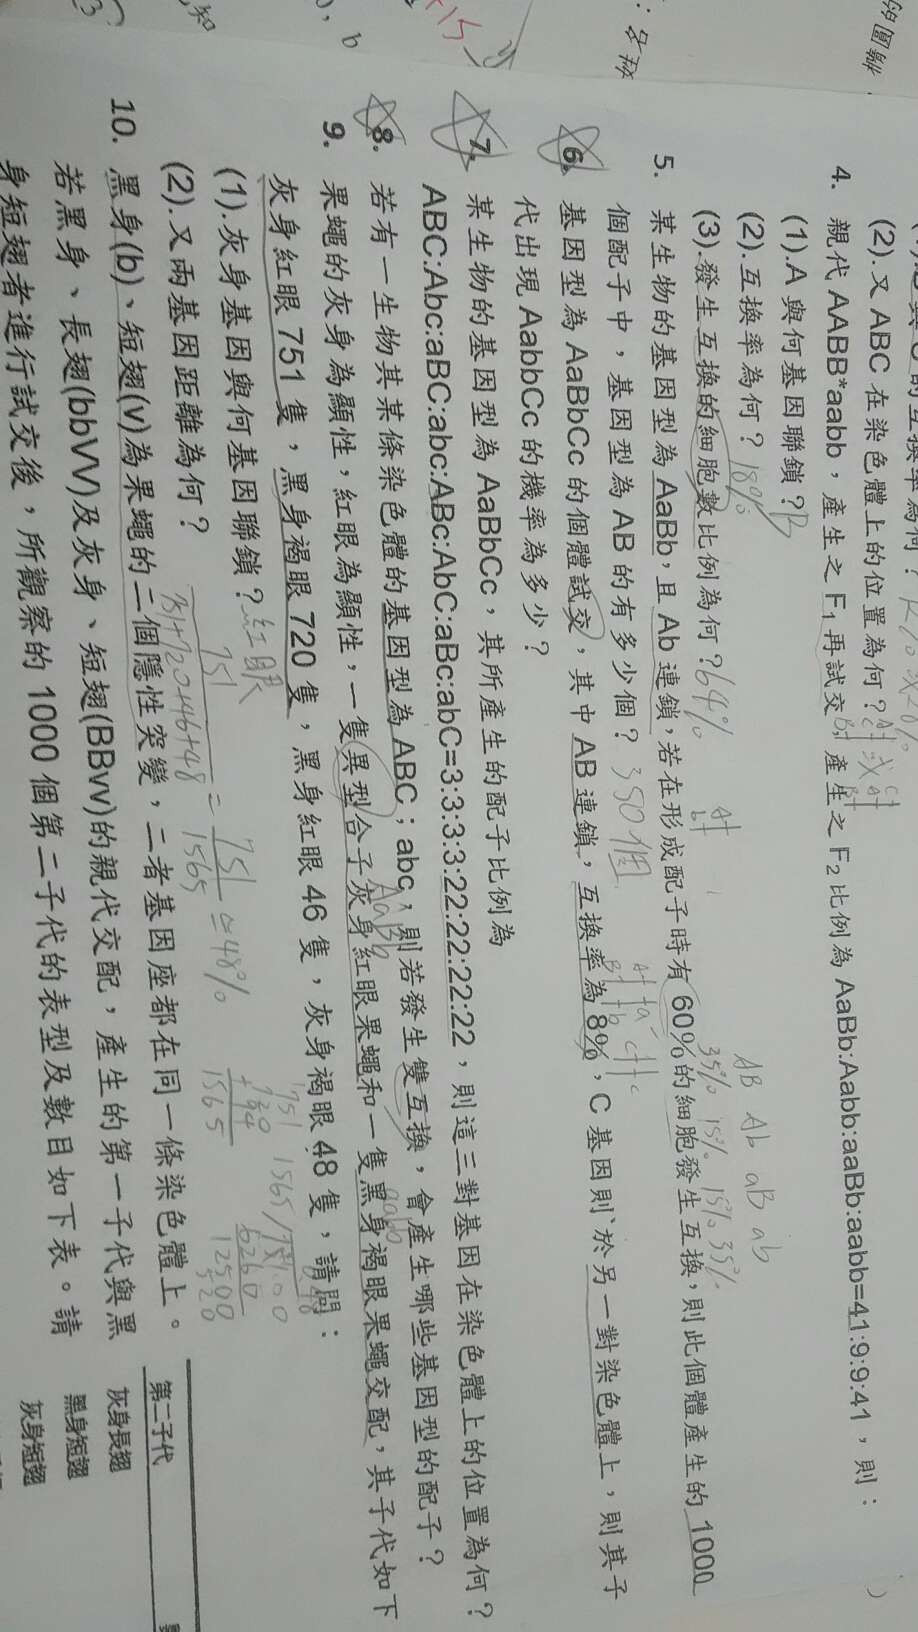 (2).又 ABC 在染色體上的位置為何?
4. 親代 AABB*aabb，產生之 F1 再試交，產生之 F2 比例為 AaBb:Aabb:aaBb:aabb=41:9:9:41，則：
(1).A 與何基因聯鎖? B
(2).互換率為何? 18%
(3).發生互換的細胞數比例為何? 64%
AB Ab aB ab
35% 15% 15% 35%
5. 某生物的基因型為 AaBb,且 Ab 連鎖,若在形成配子時有 60%的細胞發生互換,則此個體產生的 1000
個配子中，基因型為 AB 的有多少個? 350個
6. 基因型為 AaBbCc 的個體試交，其中 AB 連鎖，互換率為 8%，C 基因則於另一對染色體上，則其子
代出現 AabbCc 的機率為多少?
7. 某生物的基因型為 AaBbCc，其所產生的配子比例為
ABC:Abc:aBC:abc:ABc:AbC:aBc:abC=3:3:3:3:22:22:22:22，則這三對基因在染色體上的位置為何?
8. 若有一生物其某條染色體的基因型為 ABC；abc，則若發生雙互換，會產生哪些基因型的配子?
AaBb
aabb
9. 果蠅的灰身為顯性，紅眼為顯性，一隻異型合子灰身紅眼果蠅和一隻黑身褐眼果蠅交配，其子代如下
灰身紅眼 751 隻，黑身褐眼 720 隻，黑身紅眼 46 隻，灰身褐眼 48 隻，請問：
(1).灰身基因與何基因聯鎖? 紅眼
(2).又兩基因距離為何?
751
751+720+46+48 = 751
1565 ≈ 48%
10. 黑身(b)、短翅(v)為果蠅的二個隱性突變，二者基因座都在同一條染色體上。
若黑身、長翅(bbVV)及灰身、短翅(BBvv)的親代交配，產生的第一子代與黑
身短翅者進行試交後，所觀察的 1000 個第二子代的表型及數目如下表。請
第二子代
灰身長翅
黑身短翅
灰身短翅